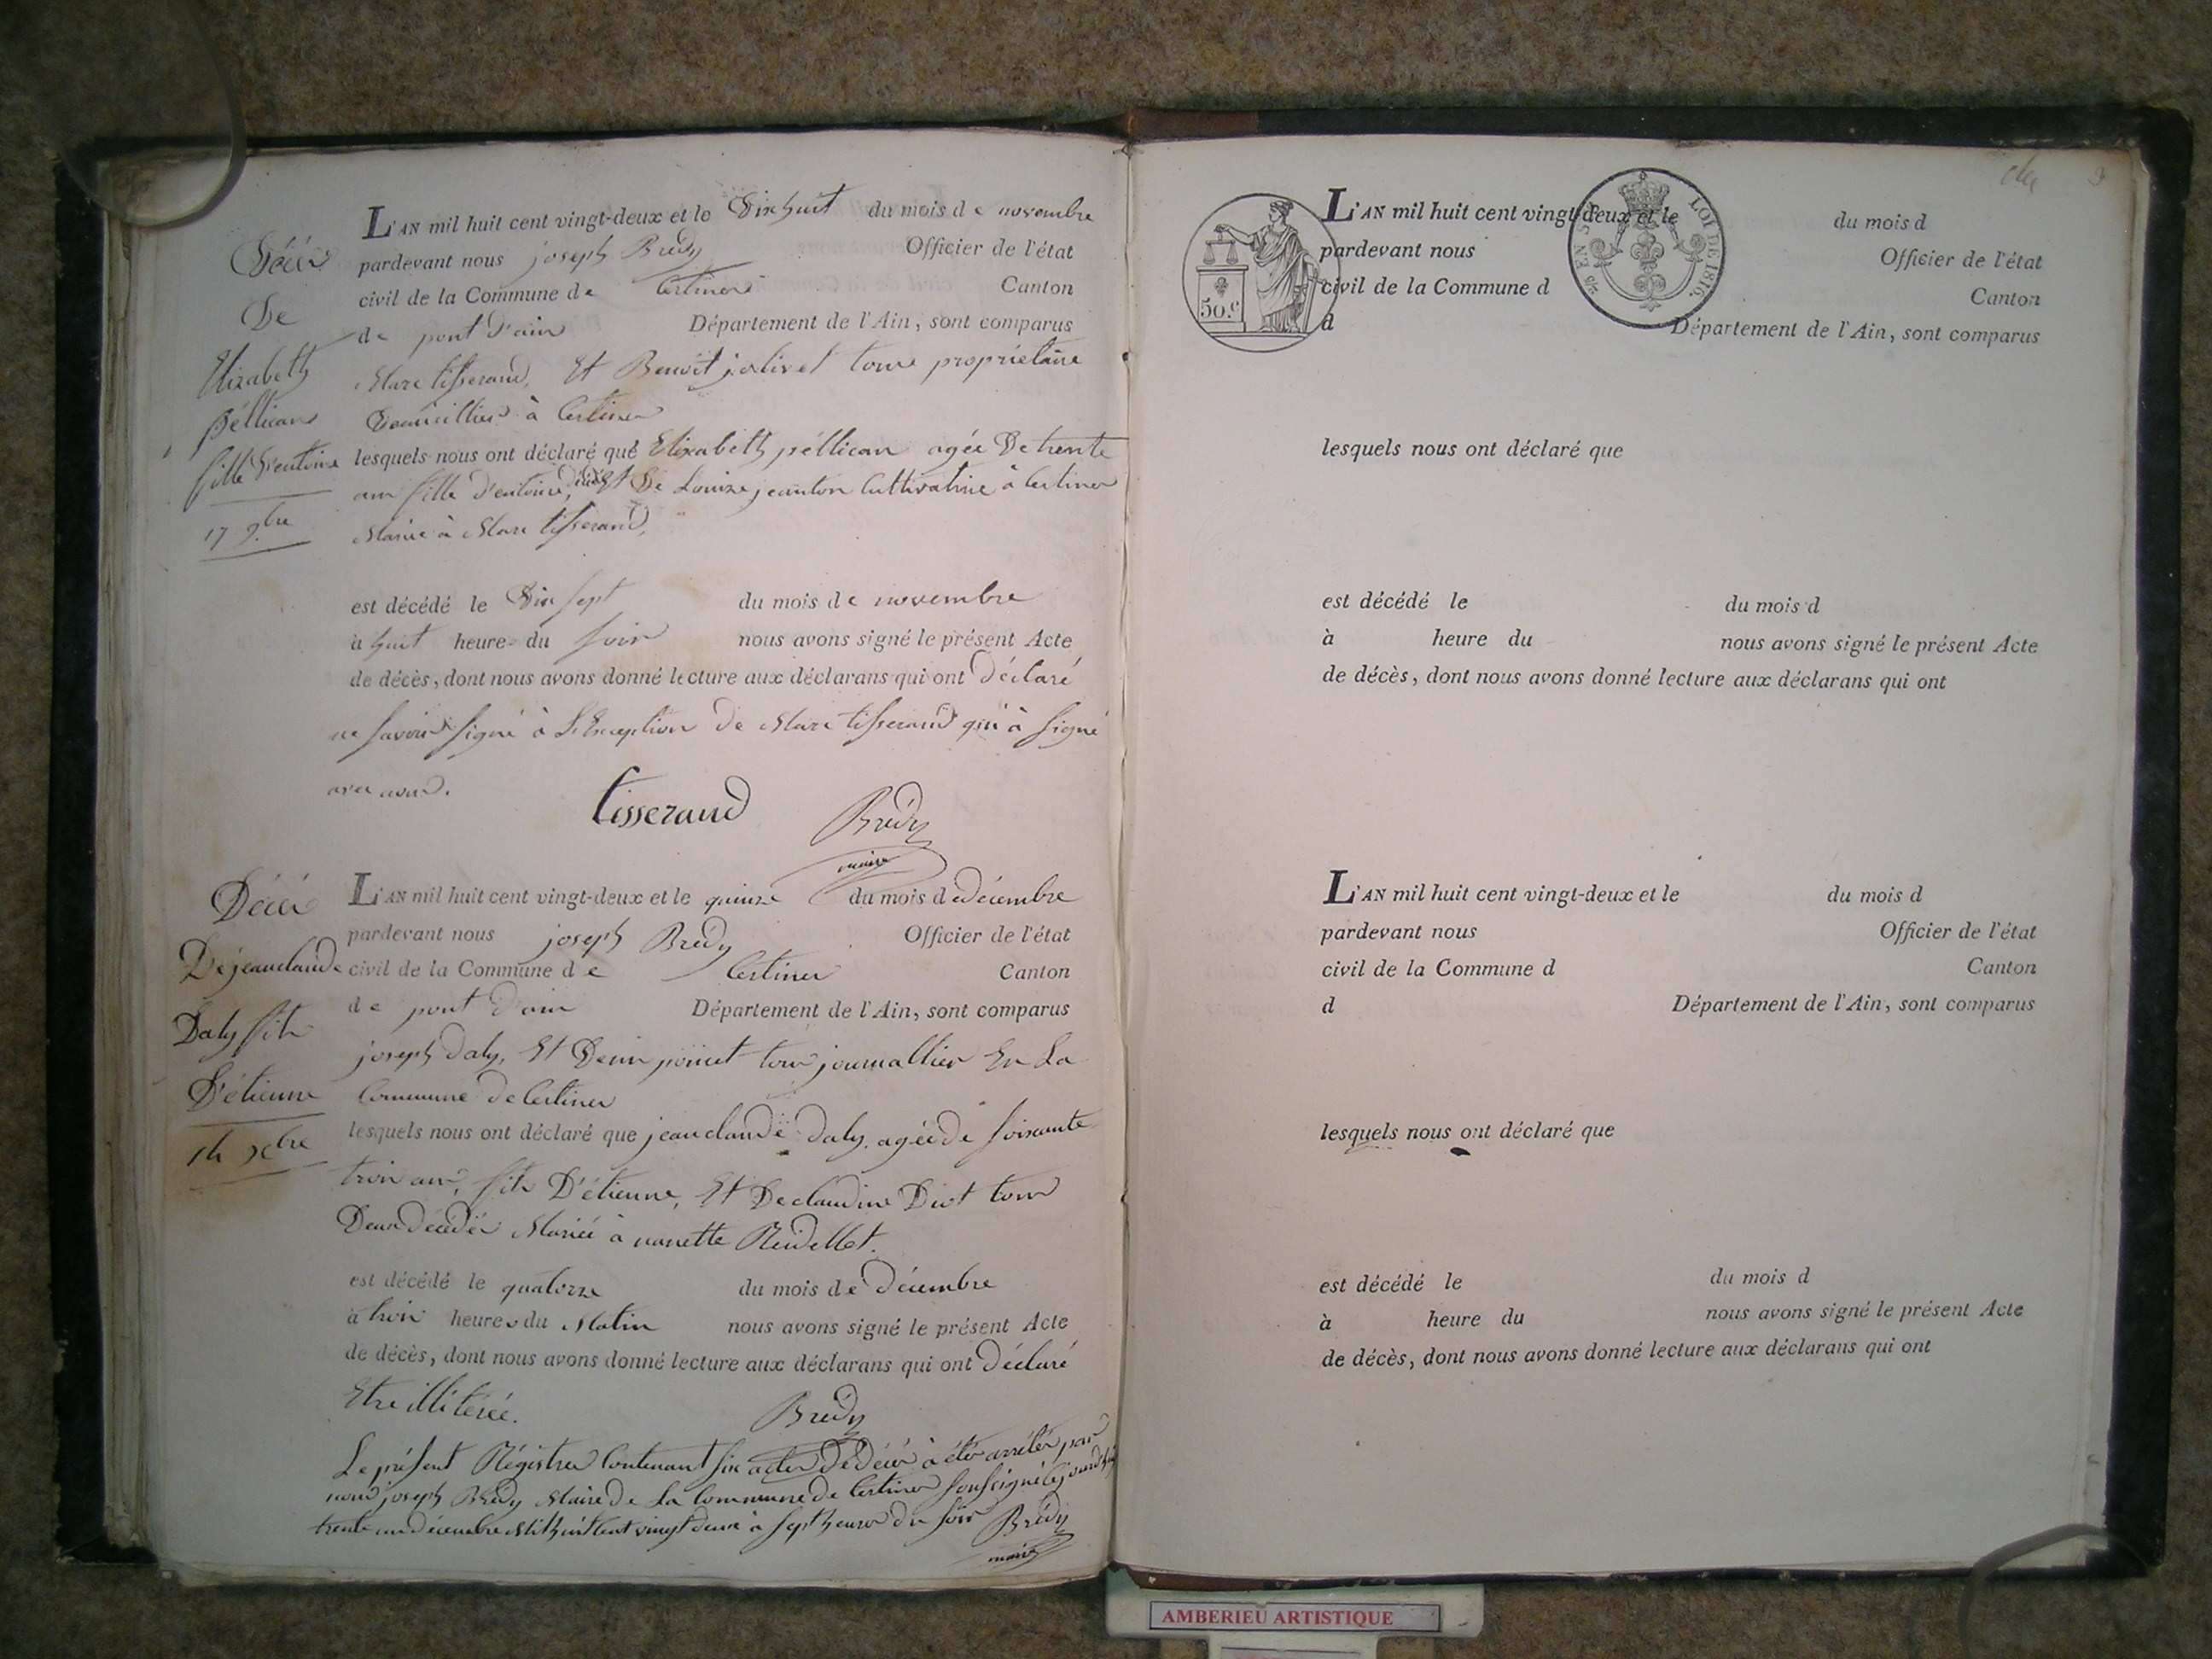 Décès
De
Elizabeth
péllican
fille d'entoine
17 9.bre
L'AN mil huit cent vingt-deux et le Dix huit du mois de novembre
pardevant nous joseph Bredy Officier de l'état
civil de la Commune de Certines Canton
de pont d'ain Département de l'Ain, sont comparus
Marc tisserand, Et Benoit jolivet tous propriétaire
Domicilliés à Certines
lesquels nous ont déclaré que Elizabeth péllican agée De trente
ans fille d'entoine, Et De Louize jeanton Cultivatrice à Certines
Mariée à Marc tisserand,
est décédé le Dix sept du mois de novembre
à huit heures du soir nous avons signé le présent Acte
de décès, dont nous avons donné lecture aux déclarans qui ont Déclaré
ne savoir signé à L'Exception de Marc tisserand qui à signé
avec nous.
tisserand Brédy
maire
Décès
De jeanclaude
Daly fils
D'étienne
14 Xbre
L'AN mil huit cent vingt-deux et le quinze du mois de décembre
pardevant nous joseph Bredy Officier de l'état
civil de la Commune de Certines Canton
de pont d'ain Département de l'Ain, sont comparus
joseph daly, Et Denis poncet tous journallier En La
Commune de Certines
lesquels nous ont déclaré que jeanclaude daly agée de soixante
trois ans, fils D'étienne, Et De claudine Diot tous
Deux décédés Mariée à nanette
est décédé le quatorze du mois de Décembre
à trois heures du Matin nous avons signé le présent Acte
de décès, dont nous avons donné lecture aux déclarans qui ont Déclaré
Etre illitérée.
Bredy
Le présent Régistre Contenant six actes De Décès à étés arrétés par
nous joseph Bredy Maire De La Commune de Certines soussigné
trente un décembre Mil huit Cent vingt deux à sept heures du soir Brédy
maire
50 c.
LOI DE 1816.
L'AN mil huit cent vingt-deux et le du mois d
pardevant nous Officier de l'état
civil de la Commune d Canton
d Département de l'Ain, sont comparus
lesquels nous ont déclaré que
est décédé le du mois d
à heure du nous avons signé le présent Acte
de décès, dont nous avons donné lecture aux déclarans qui ont
L'AN mil huit cent vingt-deux et le du mois d
pardevant nous Officier de l'état
civil de la Commune d Canton
d Département de l'Ain, sont comparus
lesquels nous ont déclaré que
est décédé le du mois d
à heure du nous avons signé le présent Acte
de décès, dont nous avons donné lecture aux déclarans qui ont
AMBERIEU ARTISTIQUE